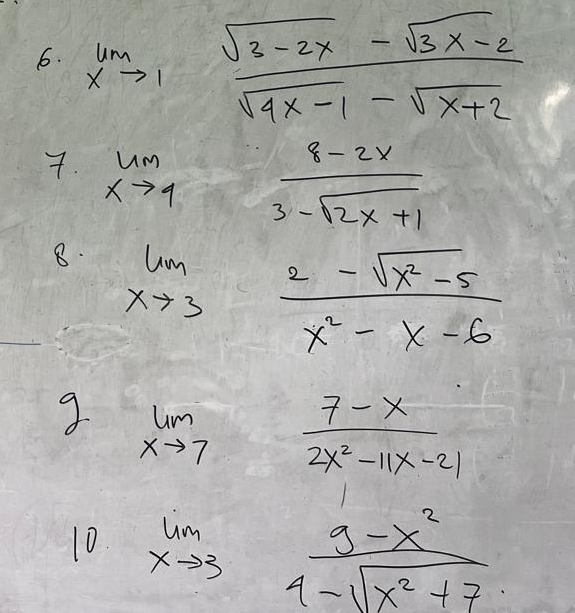 6. lim x→1 (√(3-2x) - √(3x-2)) / (√(4x-1) - √(x+2))
7. lim x→4 (8-2x) / (3-√(2x+1))
8. lim x→3 (2 - √(x²-5)) / (x² - x - 6)
9 lim x→7 (7-x) / (2x²-11x-21)
10. lim x→3 (9-x²) / (4-√(x²+7))